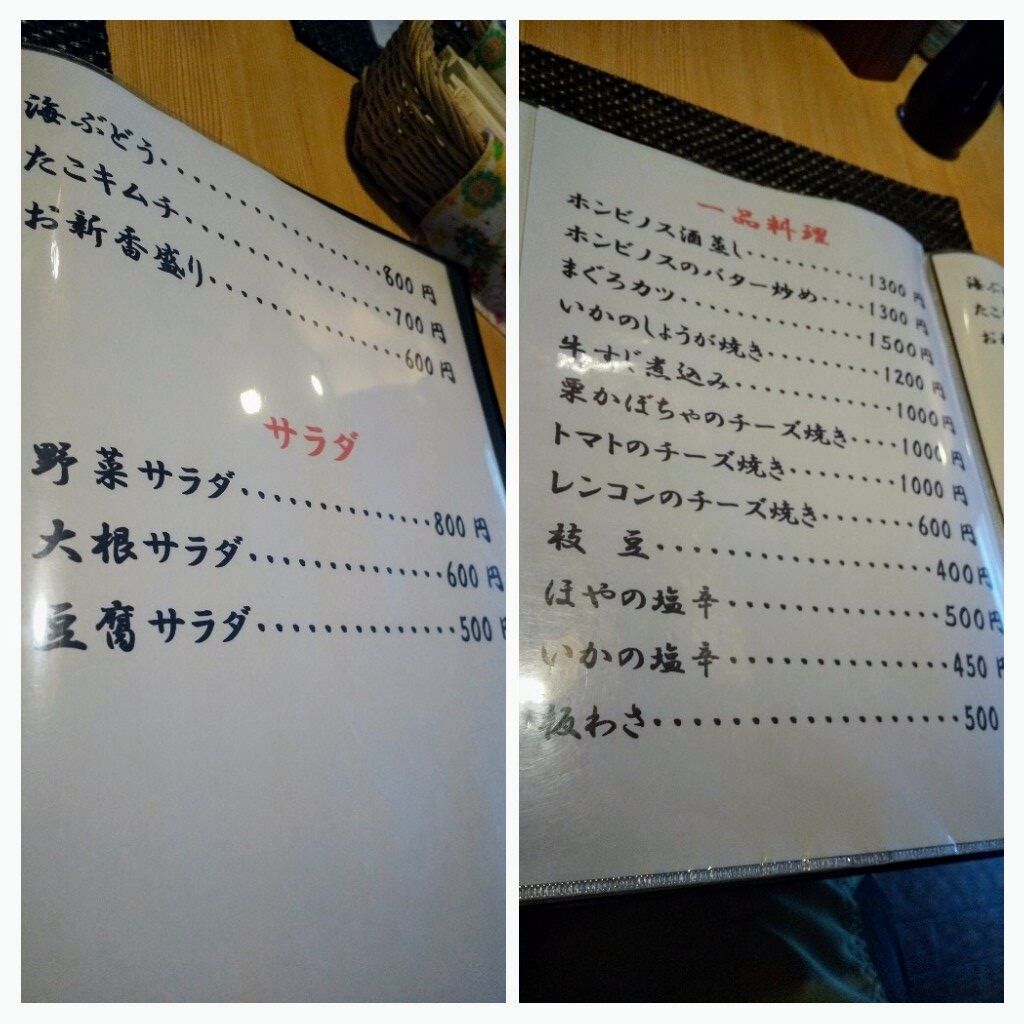 海ぶどう・・・・・・・・・・・・・・・800円
たこキムチ・・・・・・・・・・・・・・700円
お新香盛り・・・・・・・・・・・・・・600円
サラダ
野菜サラダ・・・・・・・・・・・・・800円
大根サラダ・・・・・・・・・・・・・600円
豆腐サラダ・・・・・・・・・・・・・・500円
一品料理
ホンビノス酒蒸し・・・・・・・・・・1300円
ホンビノスのバター炒め・・・・1300円
まぐろカツ・・・・・・・・・・・・・・1500円
いかのしょうが焼き・・・・・・・・1200円
牛すじ煮込み・・・・・・・・・・・・1000円
栗かぼちゃのチーズ焼き・・・・1000円
トマトのチーズ焼き・・・・・・・・1000円
レンコンのチーズ焼き・・・・・・・600円
枝豆・・・・・・・・・・・・・・・・・・400円
ほやの塩辛・・・・・・・・・・・・・・500円
いかの塩辛・・・・・・・・・・・・・・450円
板わさ・・・・・・・・・・・・・・・・・・・500